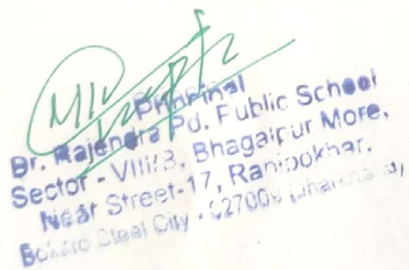 Principal
Dr. Rajendra Pd. Public School
Sector - VIII/3, Bhagalpur More,
Near Street-17, Ranipokhar,
Bokaro Steel City -